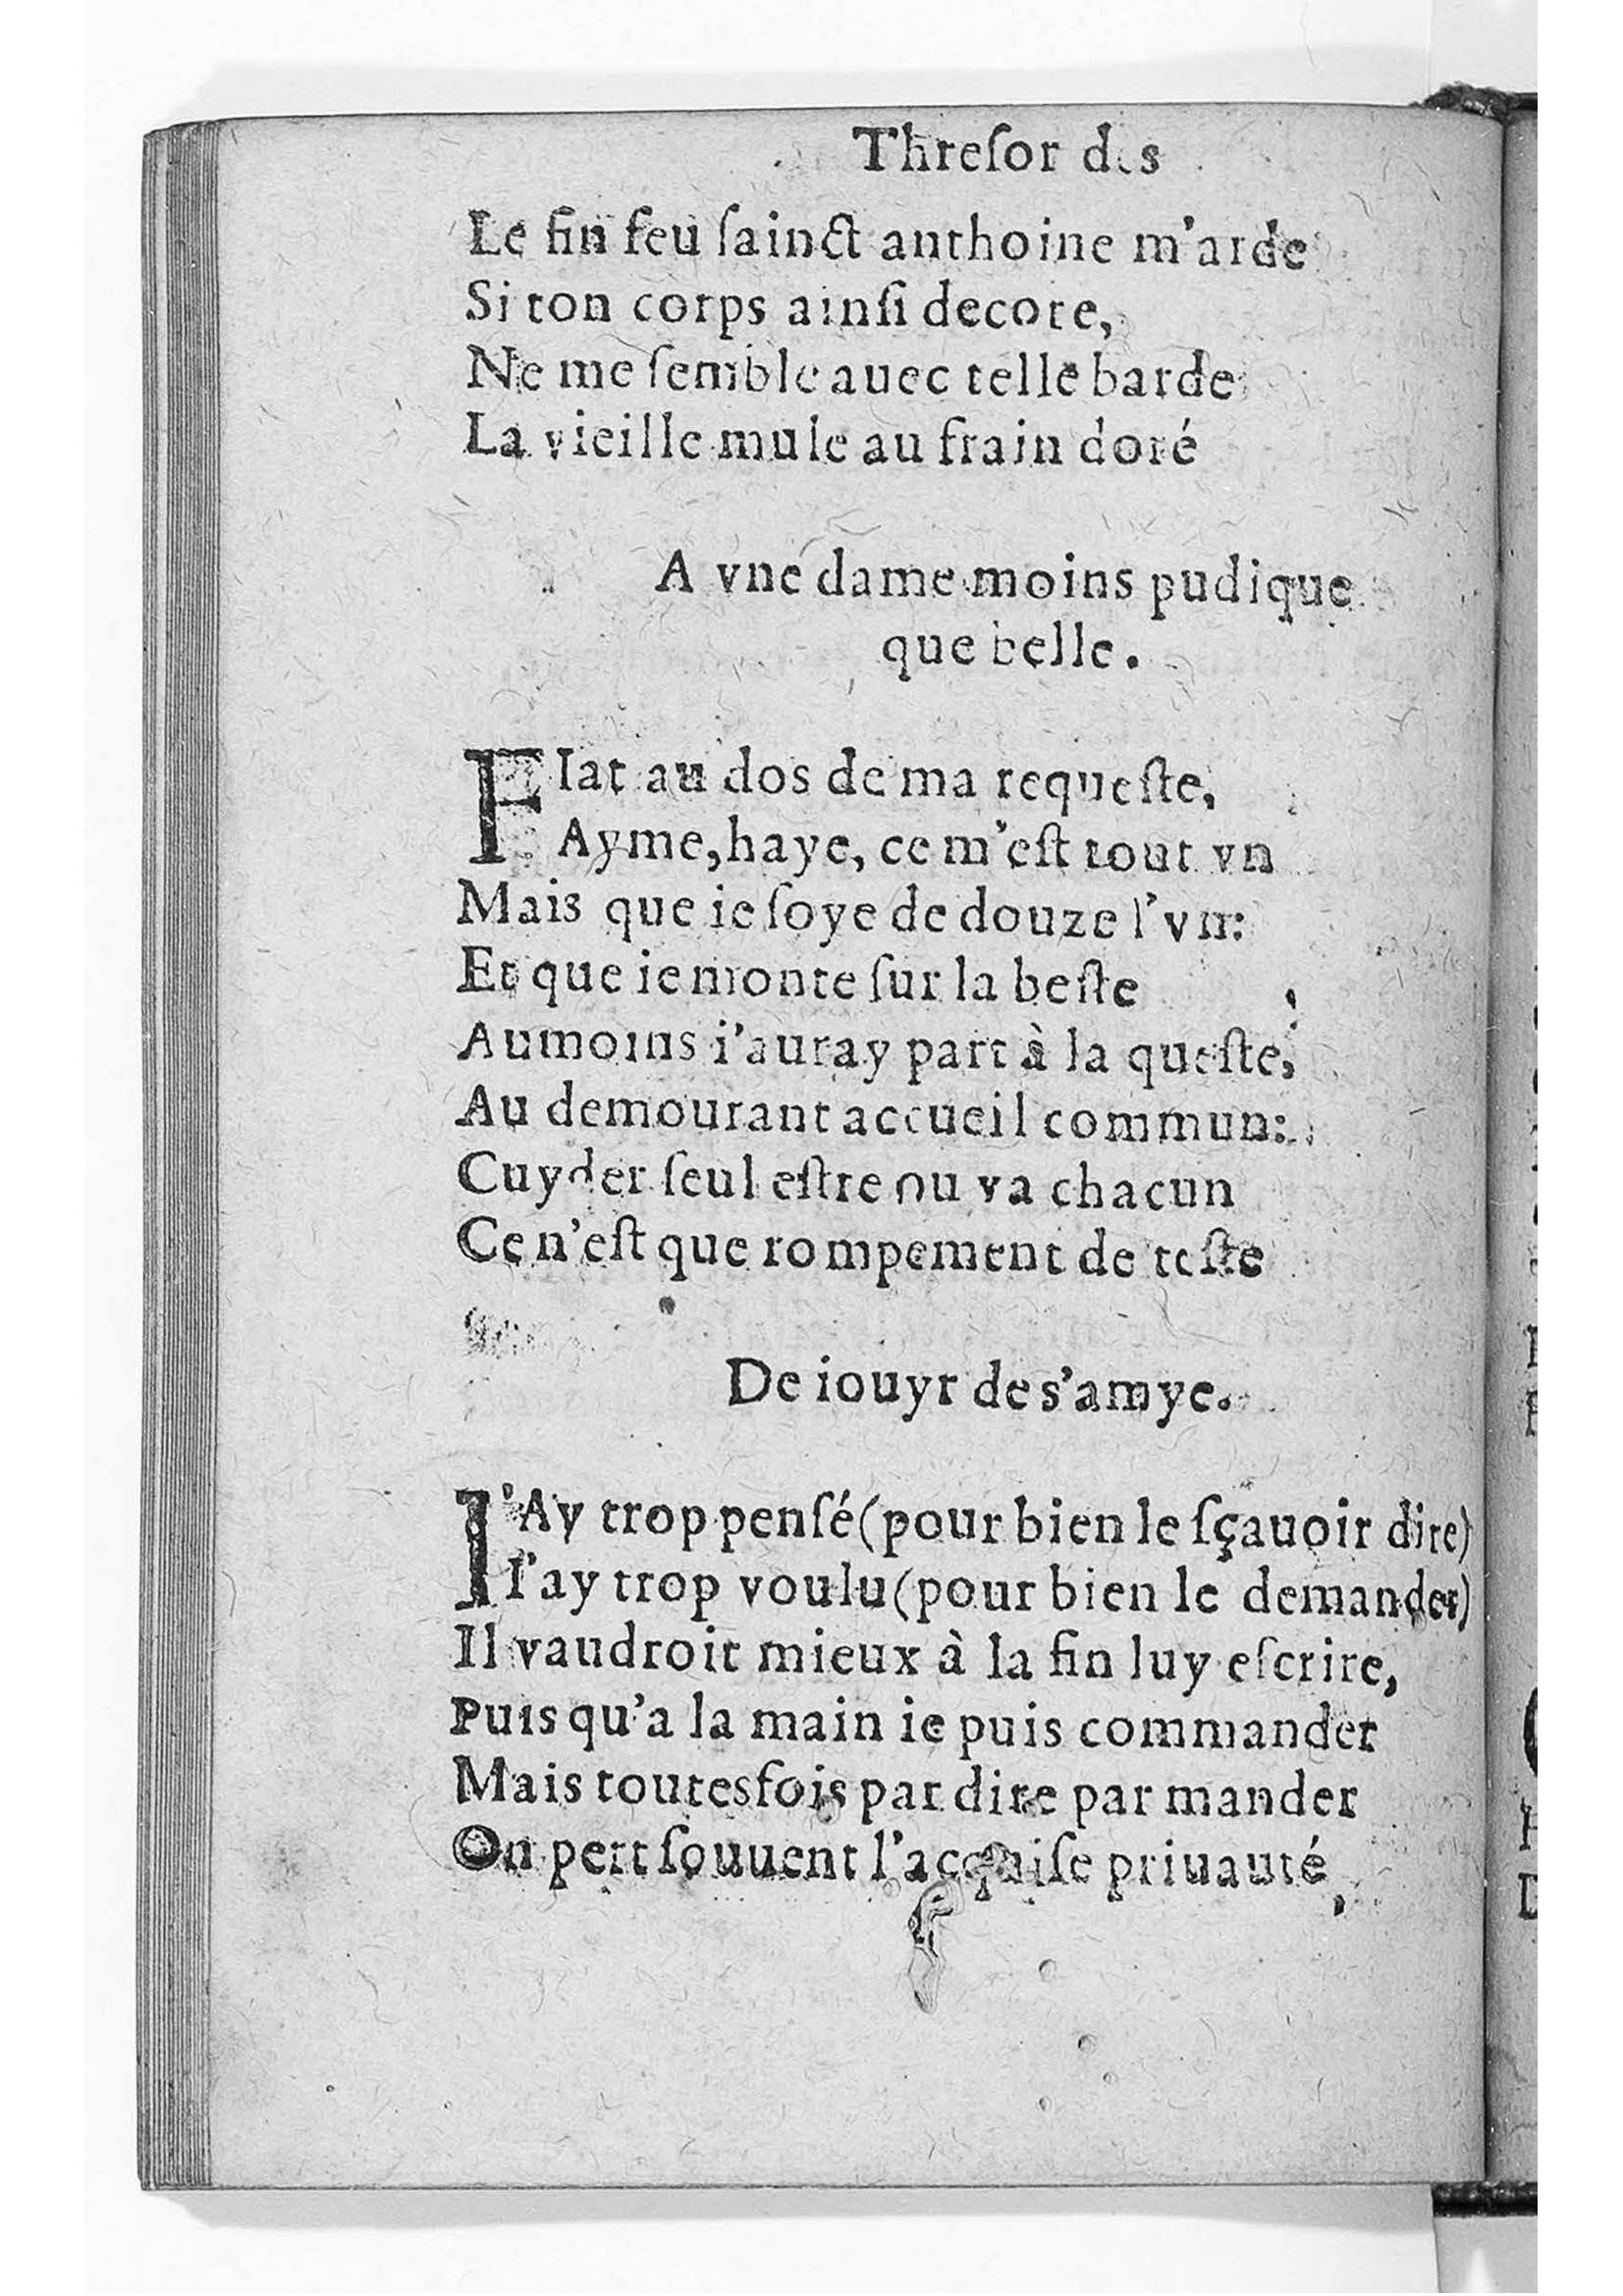 Threſor des
Le fin feu ſainct anthoine m'arde
Si ton corps ainſi decore,
Ne me ſemble auec telle barde
La vieille mule au frain doré
A vne dame moins pudique
que belle.
FIat au dos de ma requeſte,
Ayme, haye, ce m'eſt tout vn
Mais que ie ſoye de douze l'vn:
Et que ie monte ſur la beſte
Aumoins i'auray part à la queſte,
Au demourant accueil commun:
Cuyder ſeul eſtre ou va chacun
Ce n'eſt que rompement de teſte
De iouyr de s'amye.
I'Ay trop penſé (pour bien le ſçauoir dire)
I'ay trop voulu (pour bien le demander)
Il vaudroit mieux à la fin luy eſcrire,
Puis qu'a la main ie puis commander
Mais toutesfois par dire par mander
On pert ſouuent l'acquiſe priuauté,